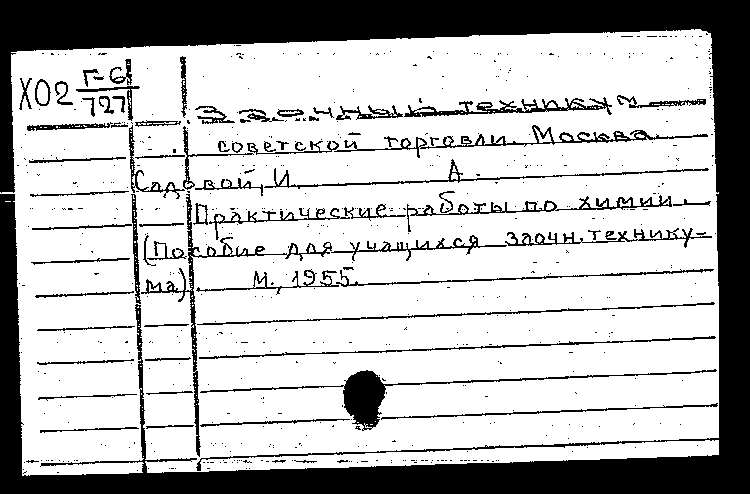 Х02 Г-6/727
Заочный техникум
советской торговли. Москва.
Садовой, И. А.
Практические работы по химии.
(Пособие для учащихся заочн. технику-
ма). М., 1955.